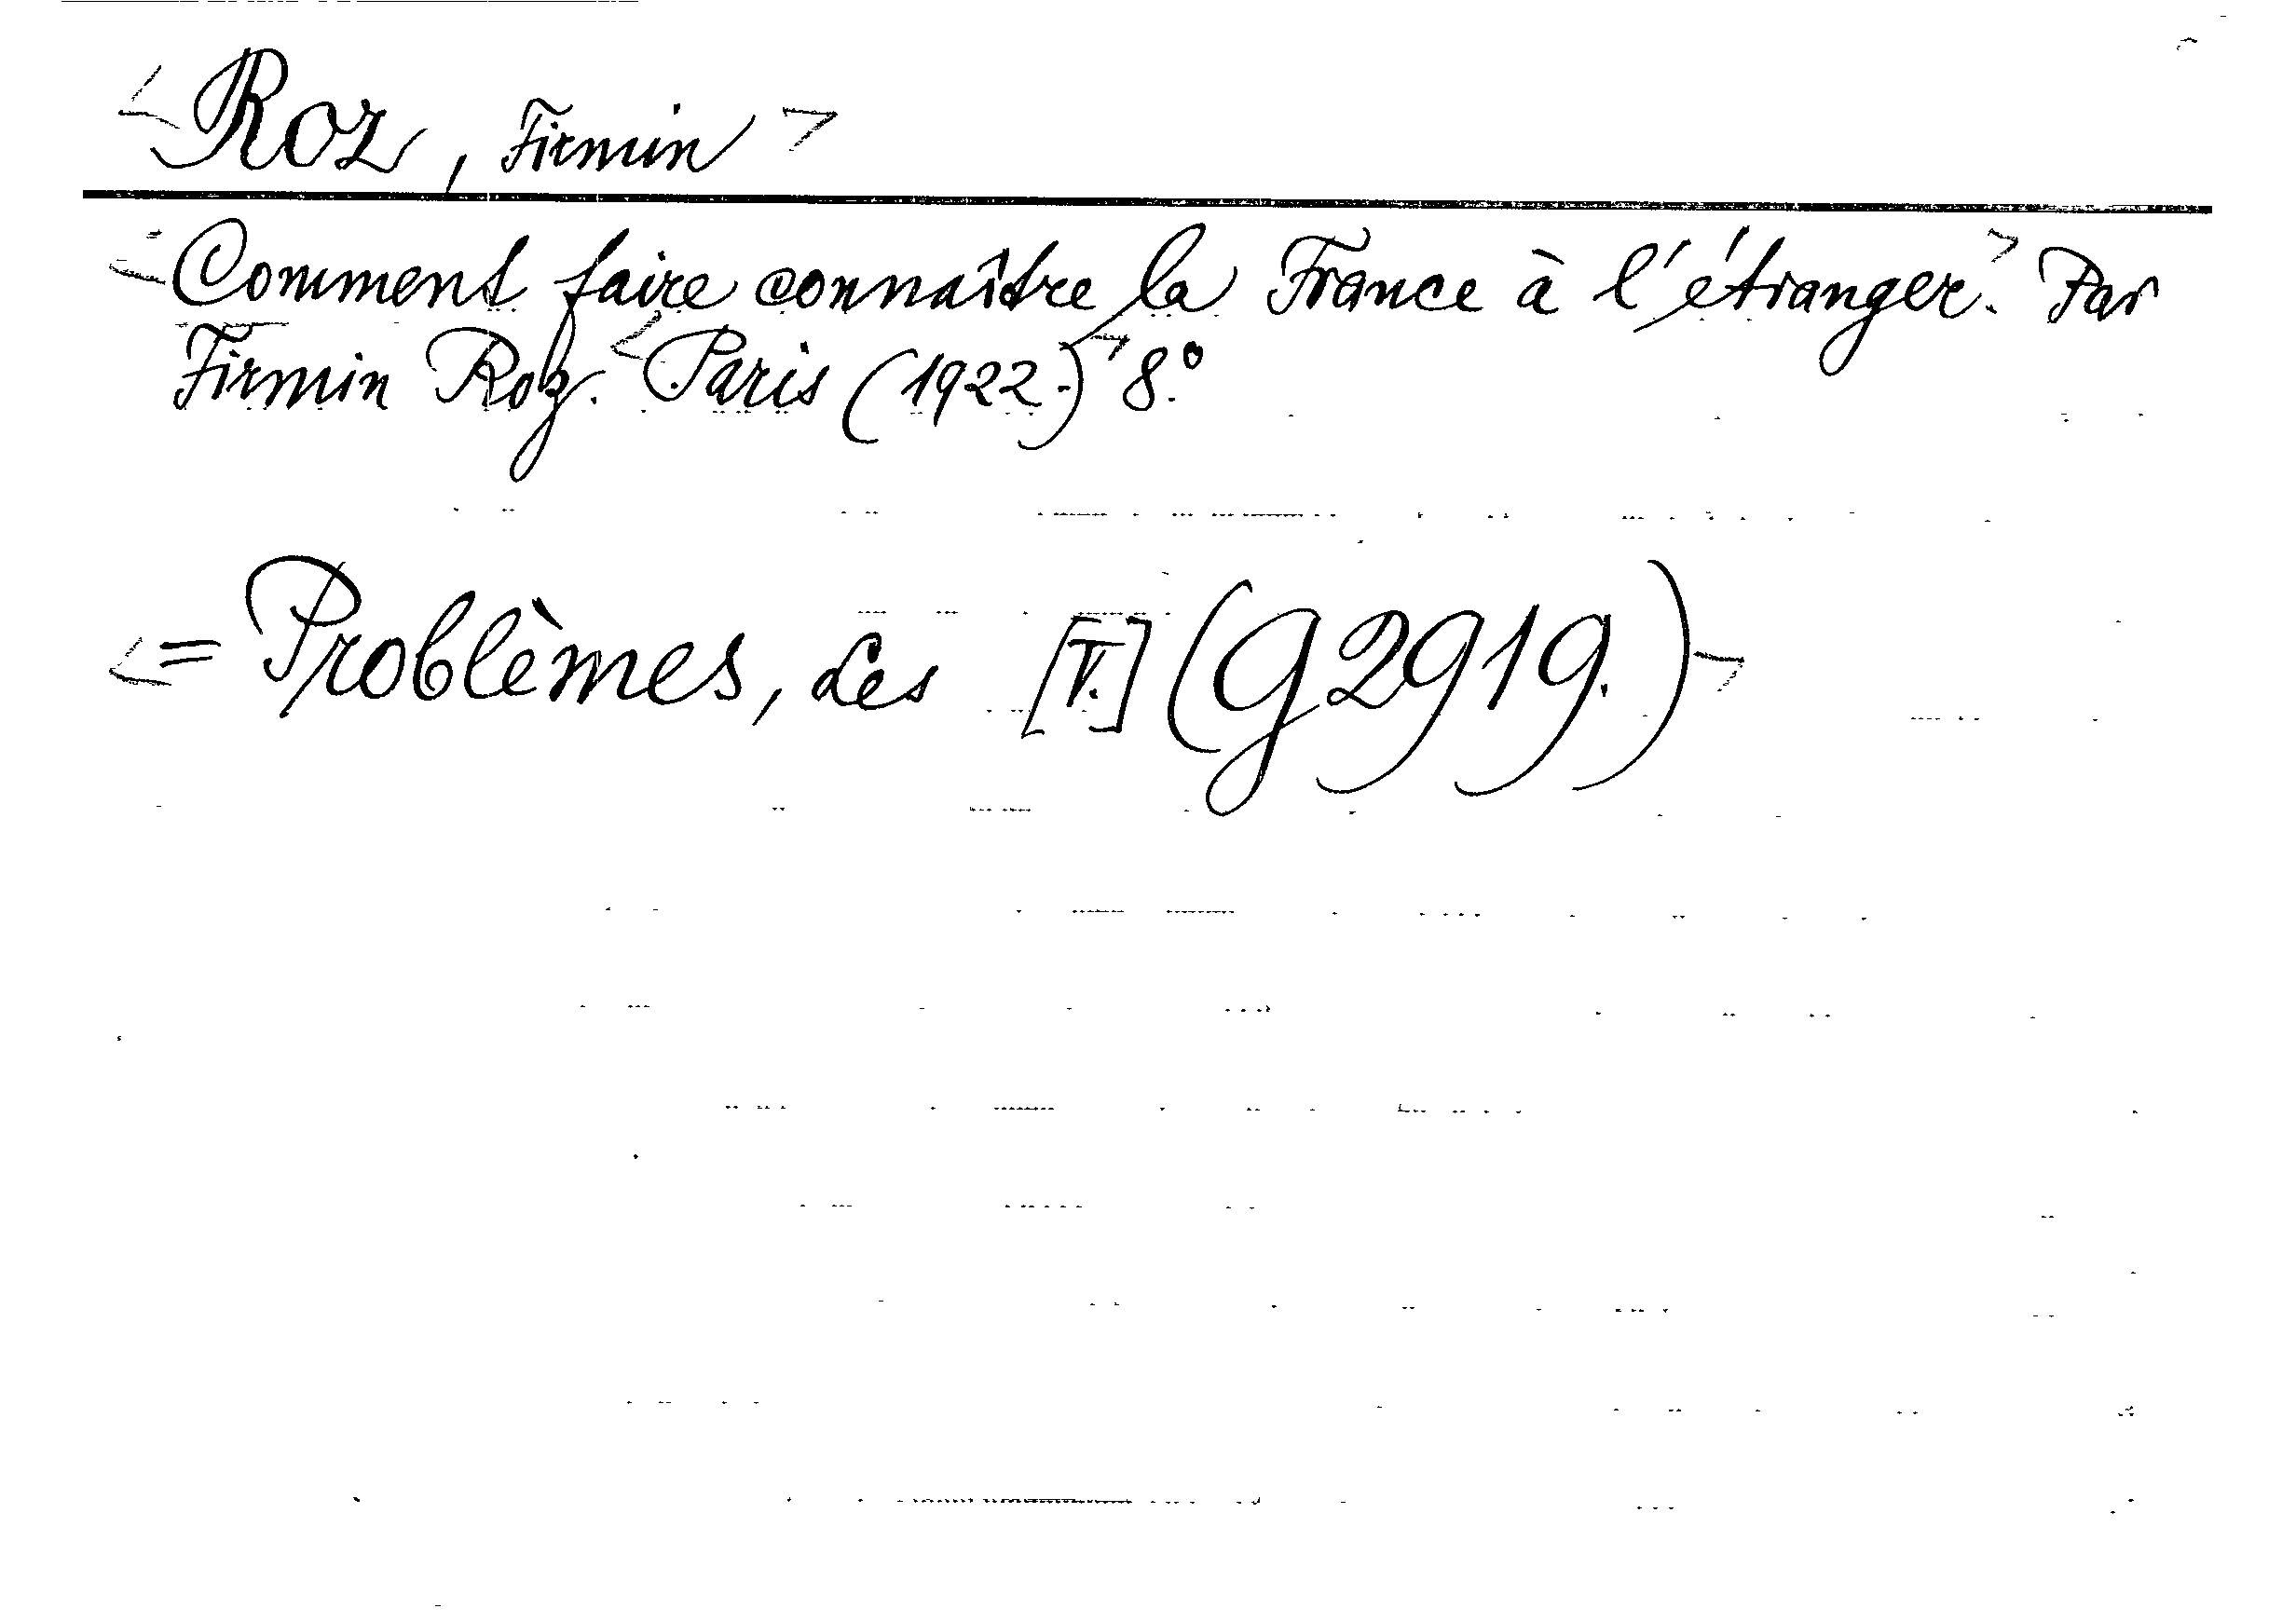 <Roz, Firmin>
<Comment faire connaître la France à l'étranger.> Par
Firmin Roz. <Paris (1922.)> 8.°
<= Problèmes, Les [V.] (G 2919.)>